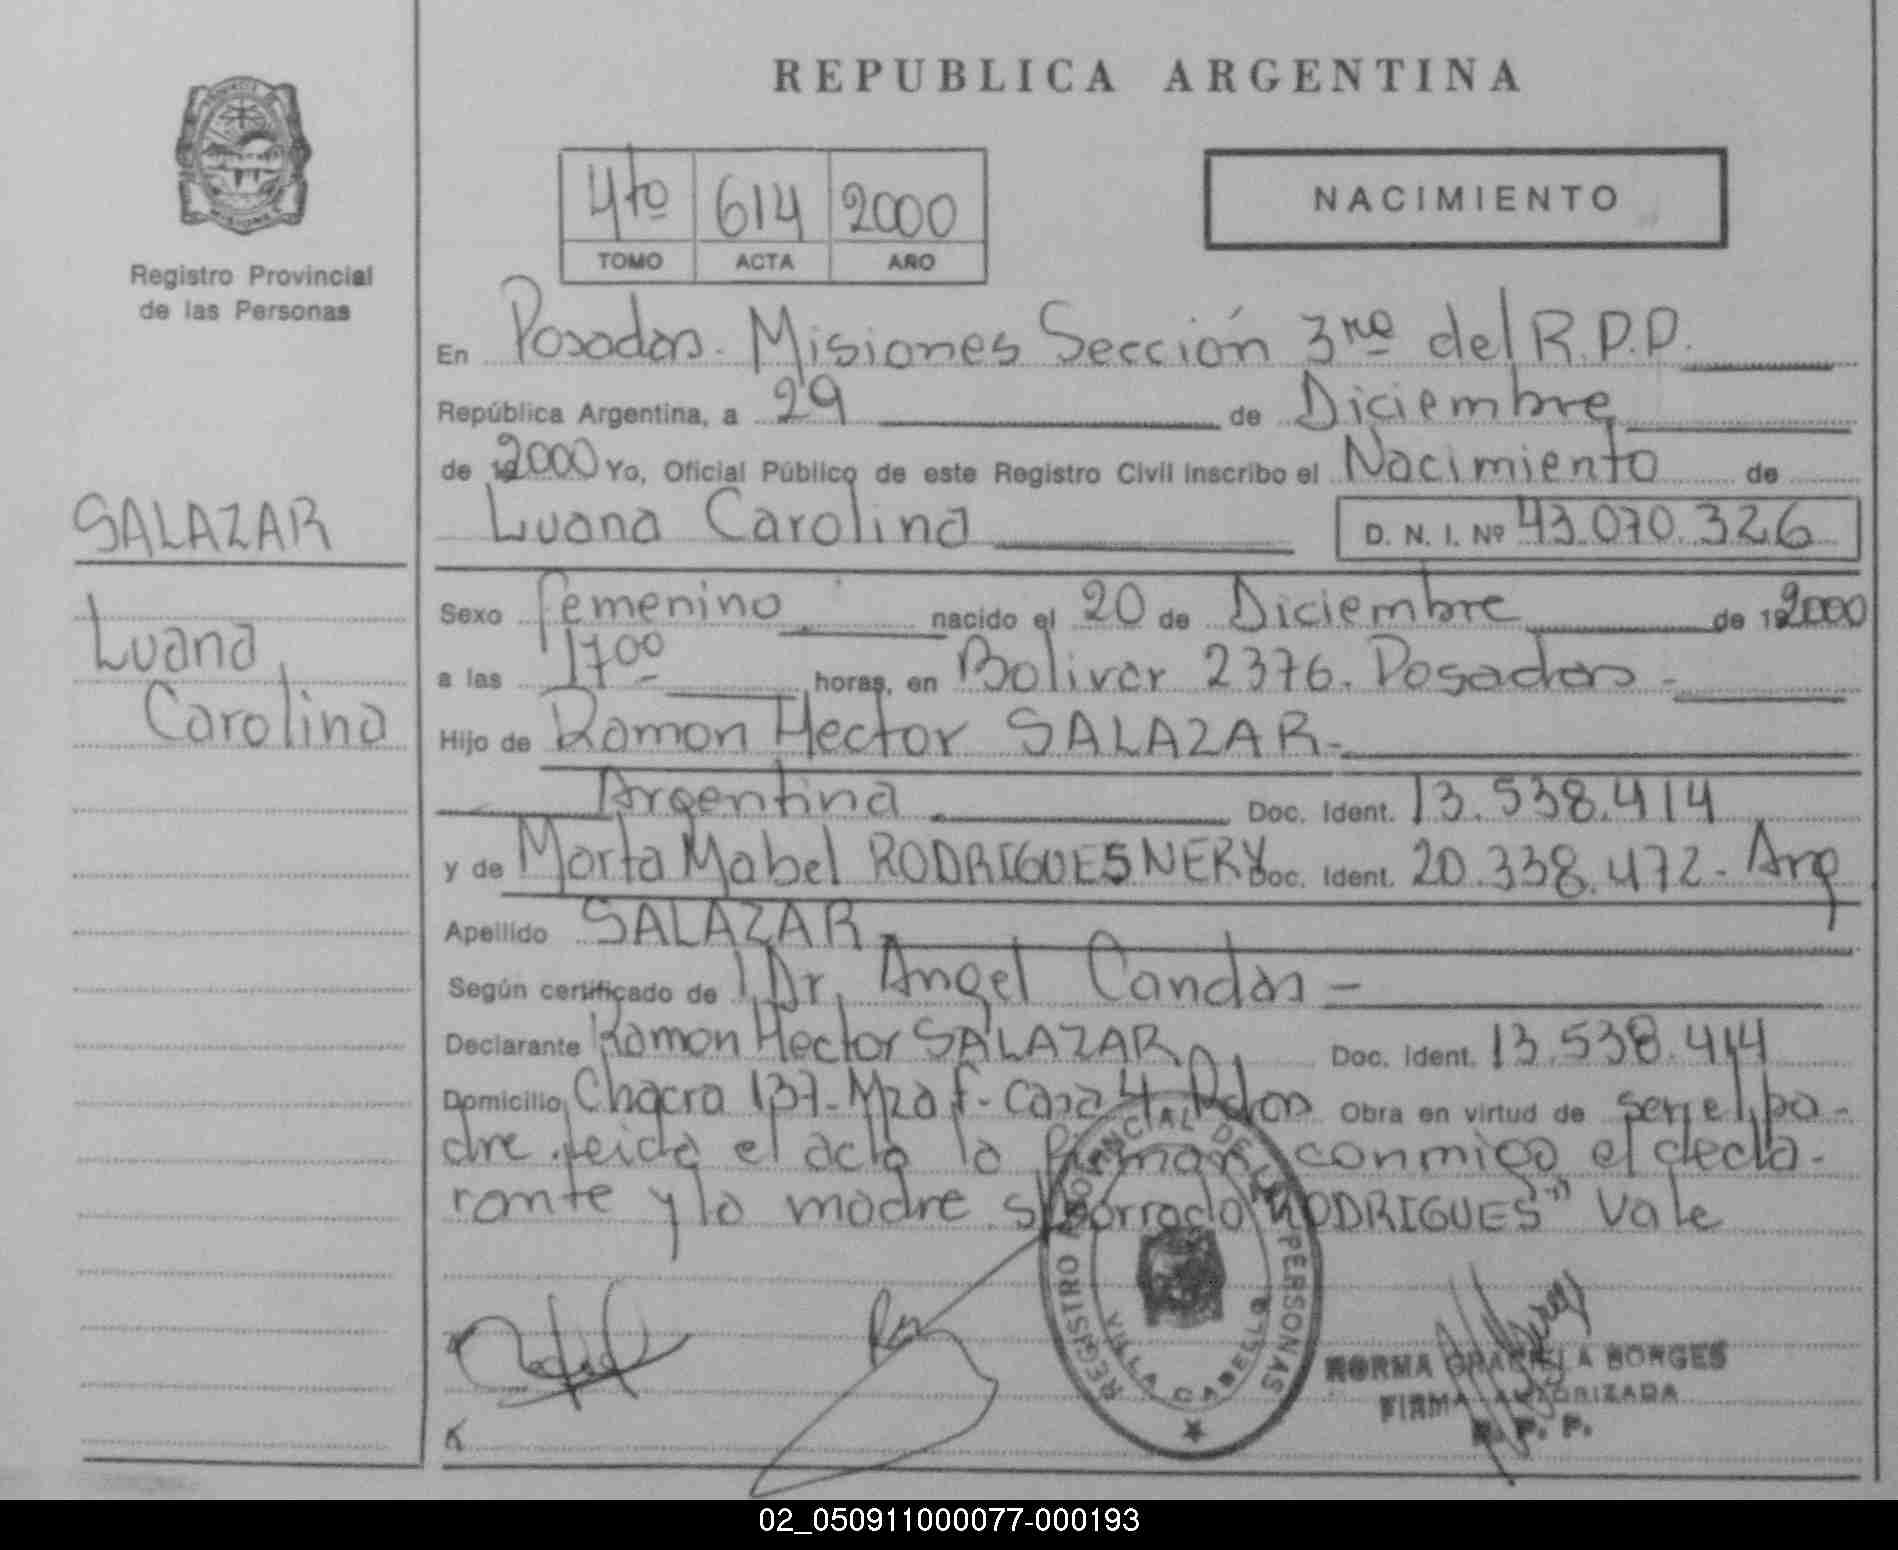 REPUBLICA ARGENTINA
Registro Provincial
de las Personas
4to 614 2000
TOMO ACTA AÑO
NACIMIENTO
SALAZAR
Luana
Carolina
En Posadas - Misiones Sección 3ra del R.P.P.
República Argentina, a 29 de Diciembre
de 2000 Yo, Oficial Público de este Registro Civil inscribo el Nacimiento de
Luana Carolina D. N. I. Nº 43.070.326
Sexo femenino nacido el 20 de Diciembre de 2000
a las 17 00 horas, en Bolivar 2376. Posadas -
Hijo de Ramon Hector SALAZAR -
Argentina Doc. Ident. 13.538.414
y de Marta Mabel RODRIGUES NERY Doc. Ident. 20.338.472 - Arg
Apellido SALAZAR
Según certificado de Dr. Angel Candas -
Declarante Ramon Hector SALAZAR Doc. Ident. 13.538.414
Domicilio Chacra 137 - Mza F - casa 4 Pdas Obra en virtud de ser el pa-
dre. leida el acta la firman conmigo el decla-
rante y la madre s/borrado "RODRIGUES" Vale
REGISTRO PROVINCIAL DE LAS PERSONAS
VILLA CABELLO
NORMA GRACIELA BORGES
FIRMA AUTORIZADA
R. P. P.
02_050911000077-000193